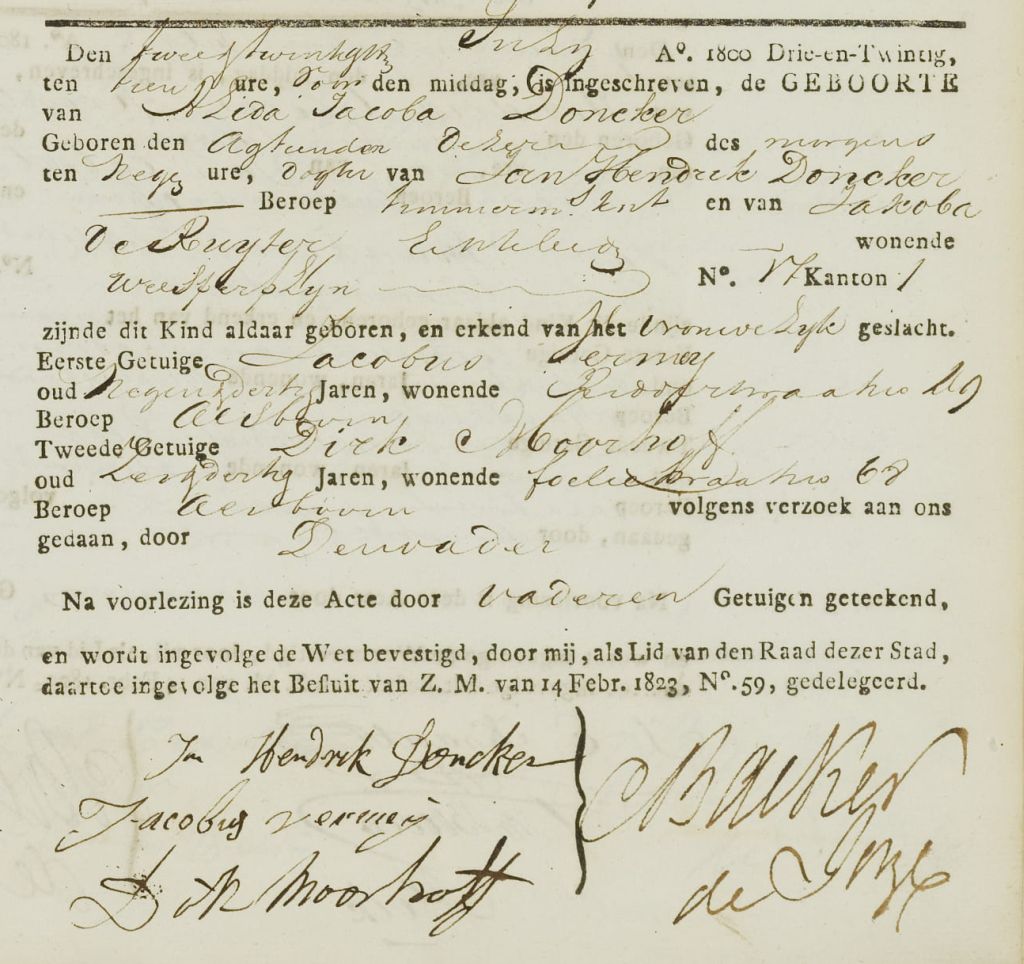 Den twee &twintigste July Aº. 1800 Drie-en-Twintig,
ten tien ure, voor den middag, is ingeschreven, de GEBOORTE
van Alida Jacoba Doncker
Geboren den Agttienden dezer des morgens
ten Nege ure, dogter van Jan Hendrik Doncker
Beroep timmerm knt en van Jakoba
De Ruyter wonende
Weesperplyn Nº. 17 Kanton 1
zijnde dit Kind aldaar geboren, en erkend van het vrouwelyk geslacht.
Eerste Getuige Jacobus Vermey
oud Negen&dertig Jaren, wonende Ridderstraat no 29
Beroep Alsboven
Tweede Getuige Dirk Moorhoff
oud Zes&dertig Jaren, wonende foeliestraat no 68
Beroep Alsboven volgens verzoek aan ons
gedaan, door Den vader
Na voorlezing is deze Acte door vader en Getuigen geteekend,
en wordt ingevolge de Wet bevestigd, door mij, als Lid van den Raad dezer Stad,
daartoe ingevolge het Besluit van Z. M. van 14 Febr. 1823, Nº. 59, gedelegeerd.
Jn Hendrik Doncker
Jacobus vermeij
Dirk Moorhoff
Backer
de